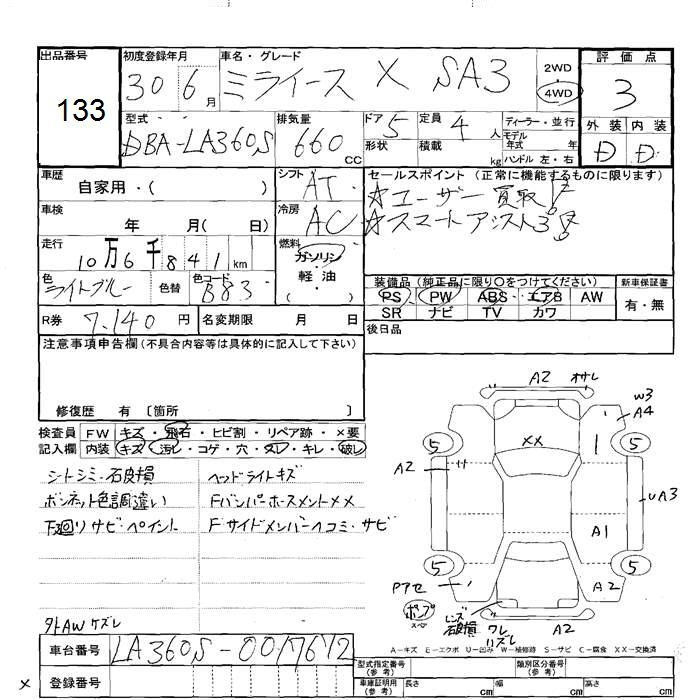 出品番号
133
初度登録年月
30 6月
車名・グレード
ミライース X SA3
2WD
4WD
評価点
3
外装 内装
D D
型式
DBA-LA360S
排気量
660 CC
ドア 5
形状
定員 4 人
積載 kg
ディーラー・並行
モデル
年式 年
ハンドル 左・右
車歴
自家用・( )
シフト
AT
セールスポイント (正常に機能するものに限ります)
☆ユーザー買取!!
☆スマートアシスト3!!
車検
年 月( 日)
冷房
AC
走行
10万6千841km
燃料
ガソリン
軽油
色
ライトブルー
色替
色コード
B83
装備品(純正品に限り○をつけてください)
PS PW ABS・エアB AW
SR ナビ TV カワ
新車保証書
有・無
R券 7,140円
名変期限 月 日
後日品
注意事項申告欄(不具合内容等は具体的に記入して下さい)
修復歴 有 〔箇所 〕
検査員
記入欄
FW キズ・飛石・ヒビ割・リペア跡・×要
内装 キズ・汚レ・コゲ・穴・スレ・キレ・破レ
シトシミ・石破損
ボンネット色調違い
下廻りサビ・ペイント
ヘッドライトキズ
Fバンパーホースメント××
Fサイドメンバーヘコミ・サビ
外AWケズレ
A2 オサレ
W3
A4
5
XX
5
A2
UA3
A1
5
5
Pアセ
A2
ポンプ
スペア
レンズ
石破損
ワレ
リズレ
A2
A-キズ E-エクボ U-凹み W-補修跡 S-サビ C-腐食 XX-交換済
車台番号
LA360S-0017612
登録番号
X
型式指定番号
(参考)
類別区分番号
(参考)
車庫証明用
(参考)
長さ cm
幅 cm
高さ cm